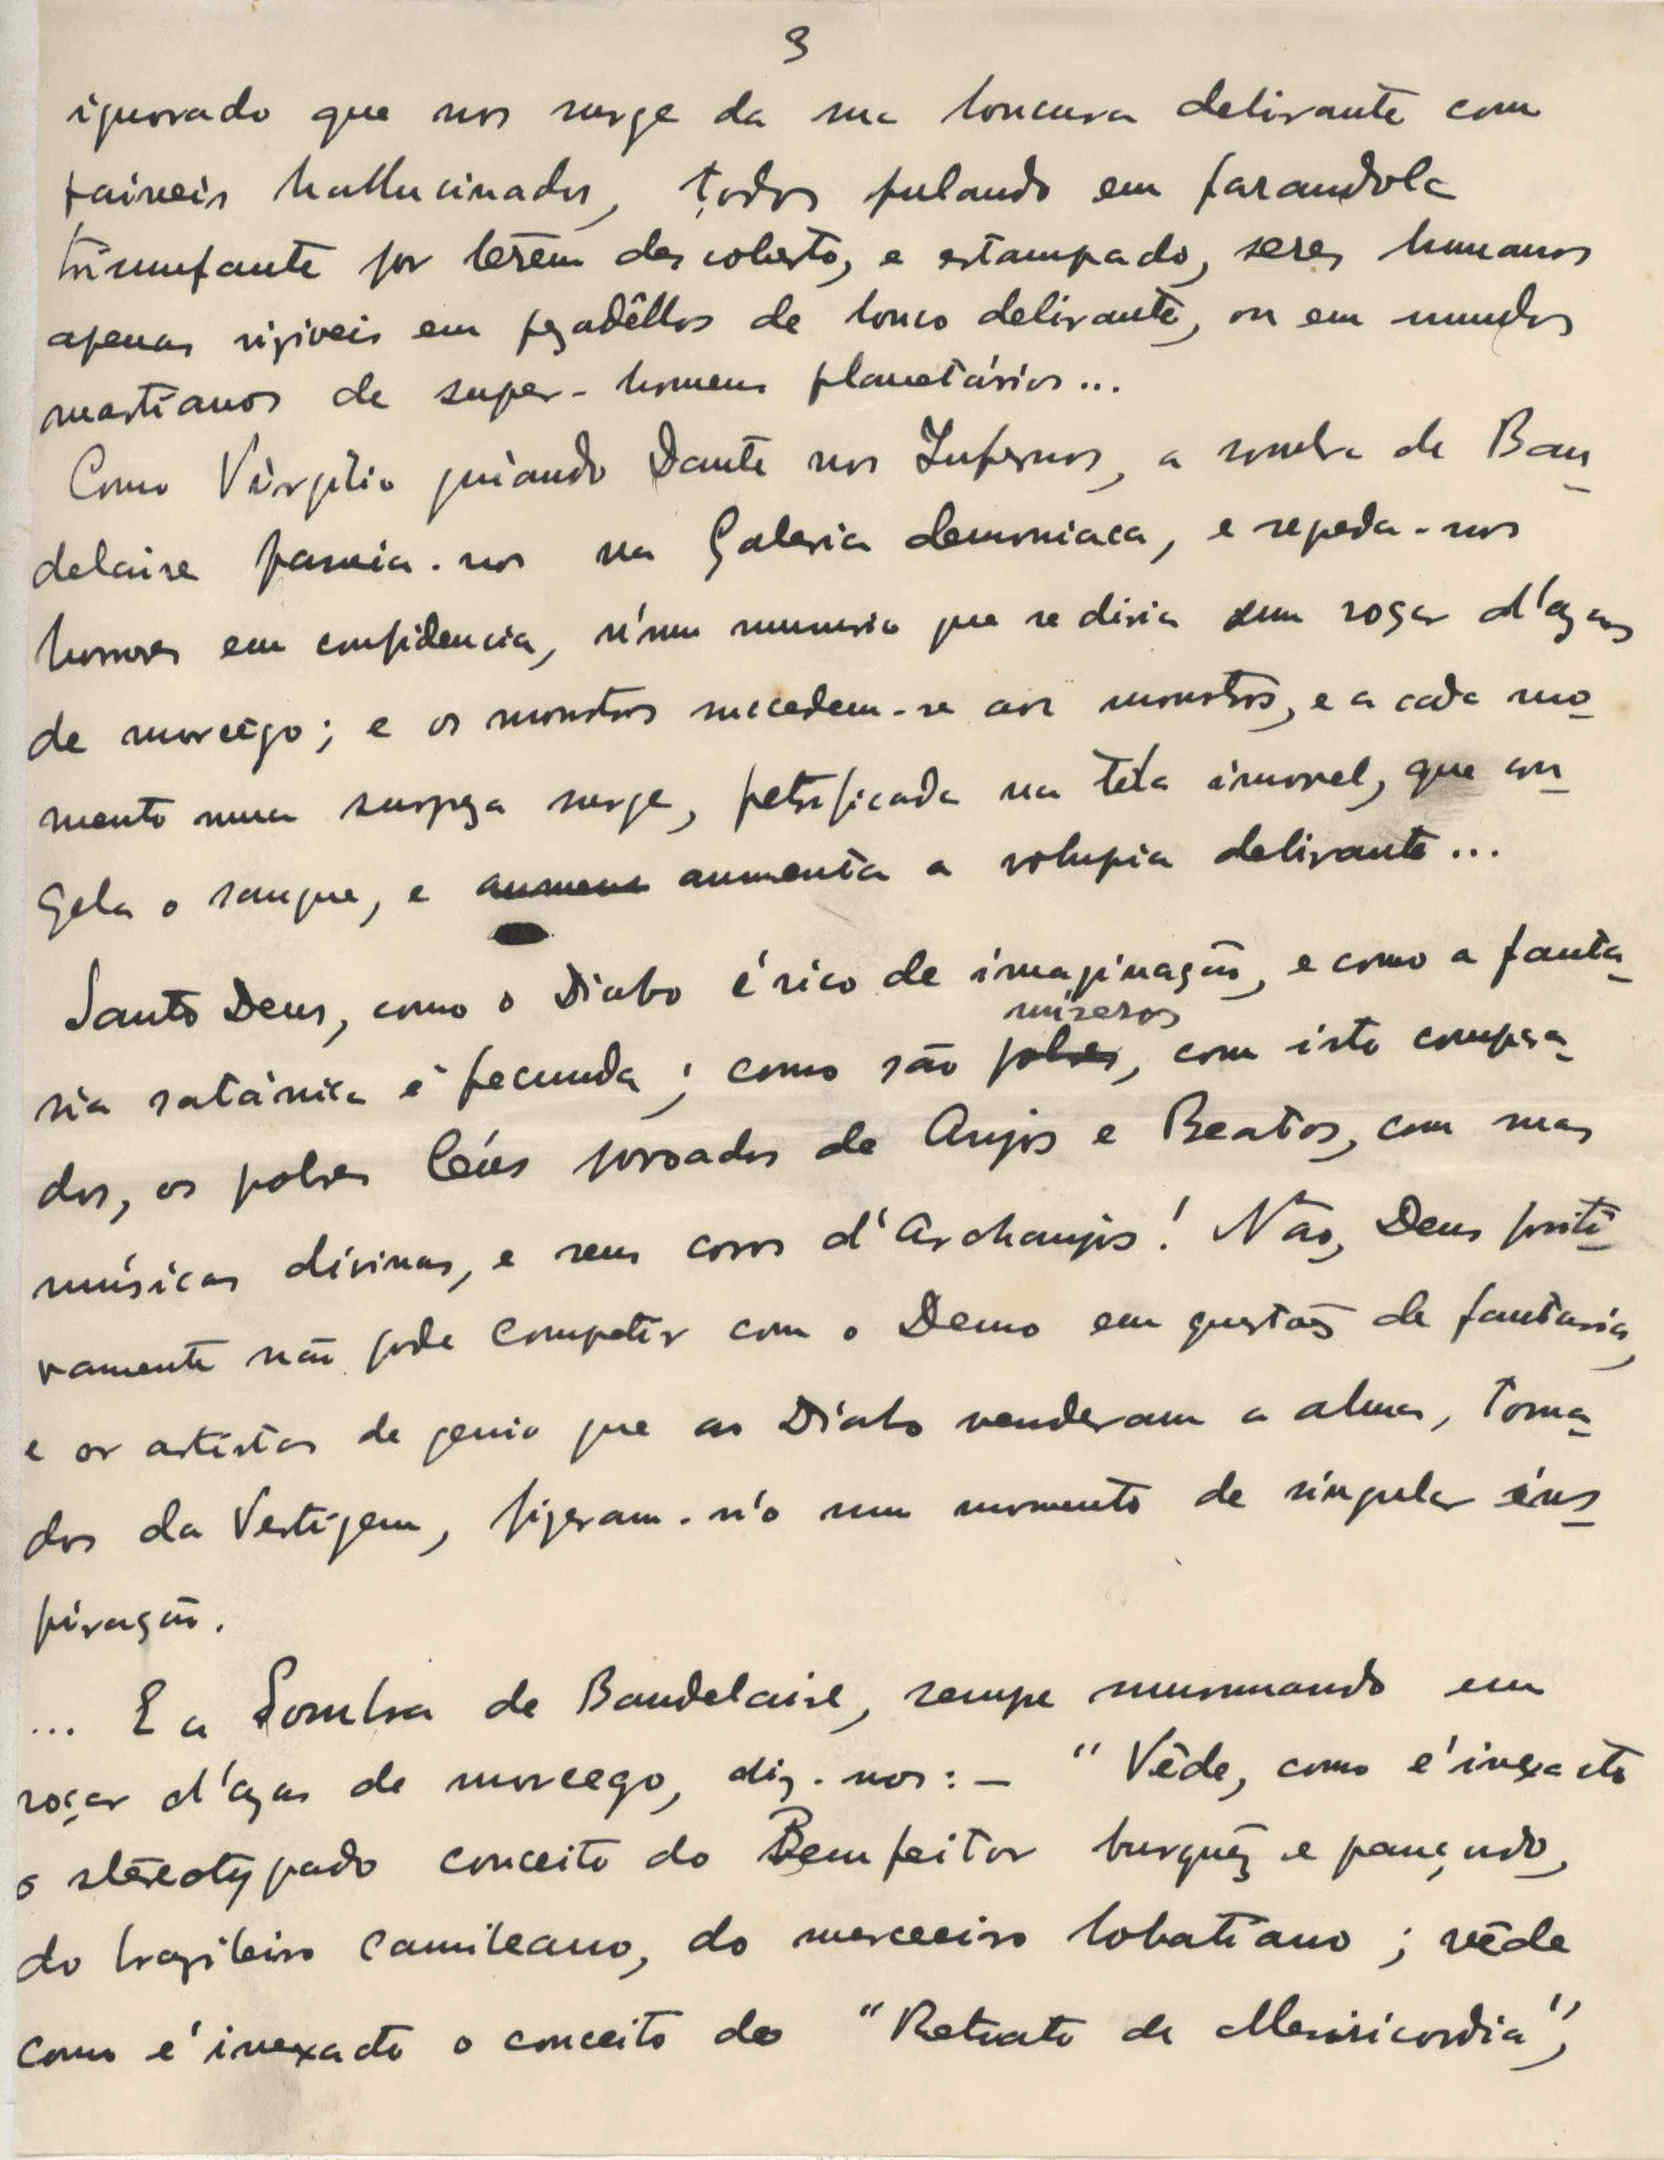 3
ignorado que nos surge da sua loucura delirante com
paineis hallucinados, todos pulando em farandola
triumfante por terem descoberto, e estampado, seres humanos
apenas visiveis em pezadêllos de louco delirante, ou em mundos
martianos de super-homens planetários...
Como Virgilio guiando Dante nos Infernos, a sombra de Bau-
delaire passeia-nos na Galeria demoniaca, e segreda-nos
horrores em confidencia, n'um murmurio que se diria um roçar d'azas
de morcêgo; e os monstros succedem-se aos monstros, e a cada mo-
mento uma surpreza surge, petrificada na téla immovel, que con-
gela o sangue, e aumenta a volupia delirante...
Santo Deus, como o Diabo é rico de imaginação, e como a fanta-
sia satánica é fecunda; como são miseros, com isto compara-
dos, os pobres Céus povoados de Anjos e Beatos, com suas
músicas divinas, e seus coros d'Archanjos! Não, Deus positi-
vamente não pode competir com o Demo em questões de fantasia,
e os artistas de genio que ao Diabo venderam a alma, toma-
dos da Vertigem, fizeram-n'o num momento de singular ins-
piração.
... E a Sombra de Baudelaire, sempre murmurando em
roçar d'azas de morcego, diz-nos: - "Vêde, como é inexacto
o stéreotypado conceito do Bemfeitor burguêz e pançudo,
do brazileiro camileano, do merceeiro lobatiano; vêde
como é inexacto o conceito do "Retrato da Misericordia",